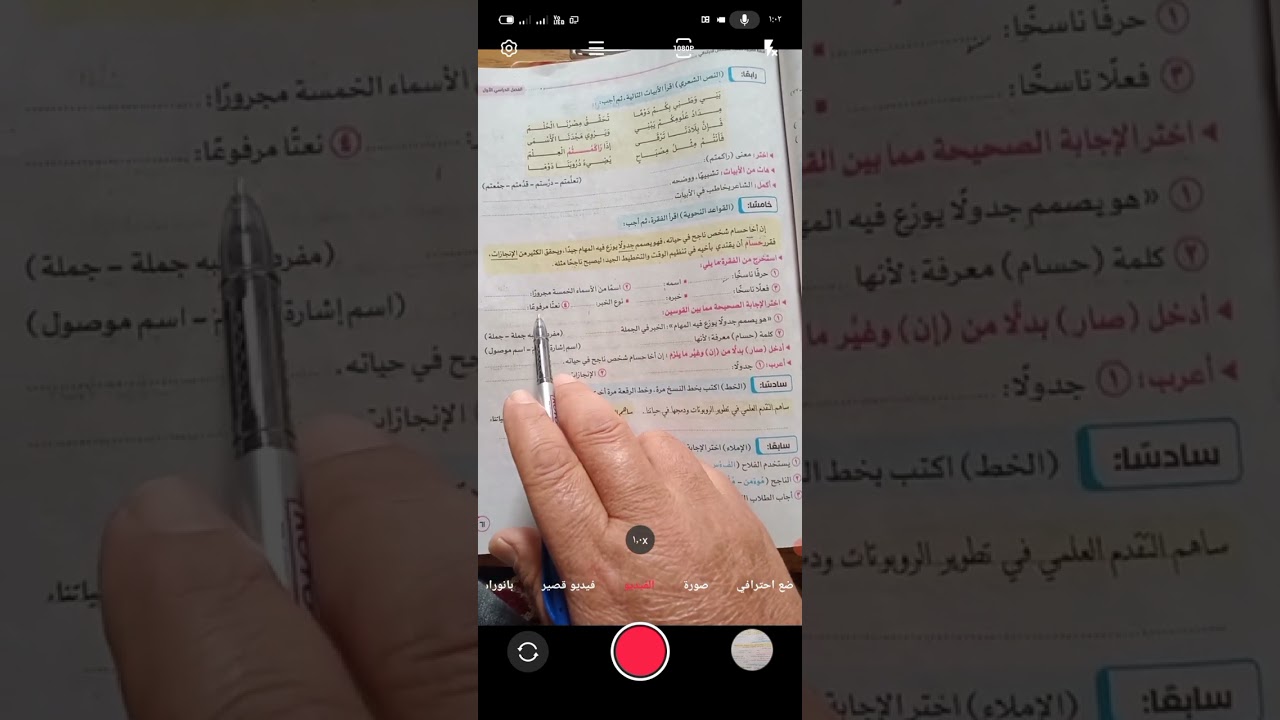 ١:٠٢
1080P
رابعًا: (النص الشعري) اقرأ الأبيات التالية، ثم أجب:
الفصل الدراسي الأول
يَبْنِي وَطَنِي بِكُمْ دَوْمًا تُحَقِّقُ مِصْرُنَا الْحُلُمَ
عُلُومِكُمْ يَبْنِي وَيَرْوِي مَجْدَنَا الْأَسْمَى
فَإِنَّ بِلَادَنَا تَرْقَى إِذَا رَاكَمْتُمُ الْعِلْمَ
فَأَنْتُمْ مِثْلُ مِصْبَاحٍ يُضِيءُ دُرُوبَنَا دَوْمًا
اختر: معنى (راكمتم): (تعلمتم - درستم - قدمتم - جمعتم)
هات من الأبيات: تشبيهًا، ووضحه.
أكمل: الشاعر يخاطب في الأبيات
خامسًا: (القواعد النحوية) اقرأ الفقرة، ثم أجب:
إن أخا حسام شخص ناجح في حياته، فهو يصمم جدولًا يوزع فيه المهام جيدًا، ويحقق الكثير من الإنجازات،
فقرر حسام أن يقتدي بأخيه في تنظيم الوقت والتخطيط الجيد؛ ليصبح ناجحًا مثله.
استخرج من الفقرة ما يلي:
١ حرفًا ناسخًا: اسمه: ٢ اسمًا من الأسماء الخمسة مجرورًا:
٣ فعلًا ناسخًا: خبره: نوع الخبر ٤ نعتًا مرفوعًا:
اختر الإجابة الصحيحة مما بين القوسين:
١ «هو يصمم جدولًا يوزع فيه المهام»: الخبر في الجملة (مفرد جملة - جملة)
٢ كلمة (حسام) معرفة؛ لأنها (اسم إشارة - اسم موصول)
أدخل (صار) بدلًا من (إن) وغيِّر ما يلزم: إن أخا حسام شخص ناجح في حياته.
أعرب: ١ جدولًا: ٢ الإنجازات
سادسًا: (الخط) اكتب بخط النسخ مرة، وخط الرقعة مرة
ساهم التقدم العلمي في تطوير الروبوتات ودمجها في حياتنا. ساهم
سابعًا: (الإملاء) اختر الإجابة
١ يستخدم الفلاح
٢ الناجح
٣ أجاب الطلاب
٦١
١,٠x
ضع احترافي
صورة
الفيديو
فيديو قصير
بانوراما